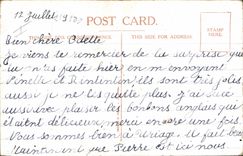 12 Juillet
POST CARD.
STAMP HERE
Bien chère Odette
Je viens te remercier de la surprise que
tu m'as faite hier en m'envoyant
Ninette et Rintintin ils sont très jolis
aussi je ne les quitte plus. J'ai
aussi avec plaisir les bonbons anglais qui
étaient délicieux, merci encore une fois.
Vous sommes bien à Uriage. Il fait beau
maintenant que Pierre est ici nous